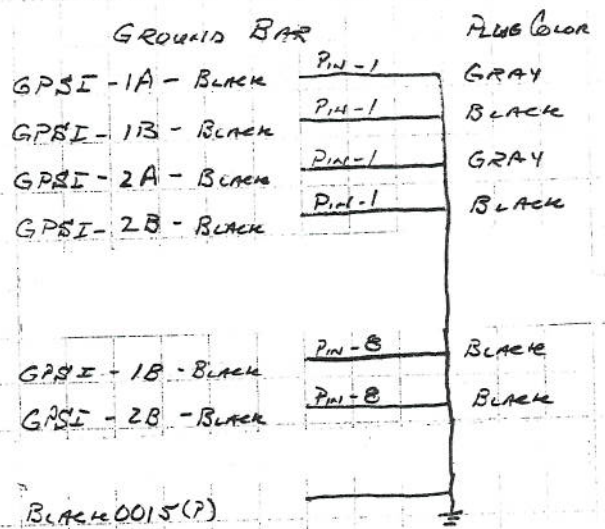 GROUND BAR PLUG COLOR
GPSI - 1A - BLACK PIN-1 GRAY
GPSI - 1B - BLACK PIN-1 BLACK
GPSI - 2A - BLACK PIN-1 GRAY
GPSI - 2B - BLACK PIN-1 BLACK
GPSI - 1B - BLACK PIN-8 BLACK
GPSI - 2B - BLACK PIN-8 BLACK
BLACK 0015(P)